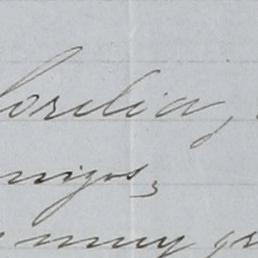 orelia,
migos,
muy gr